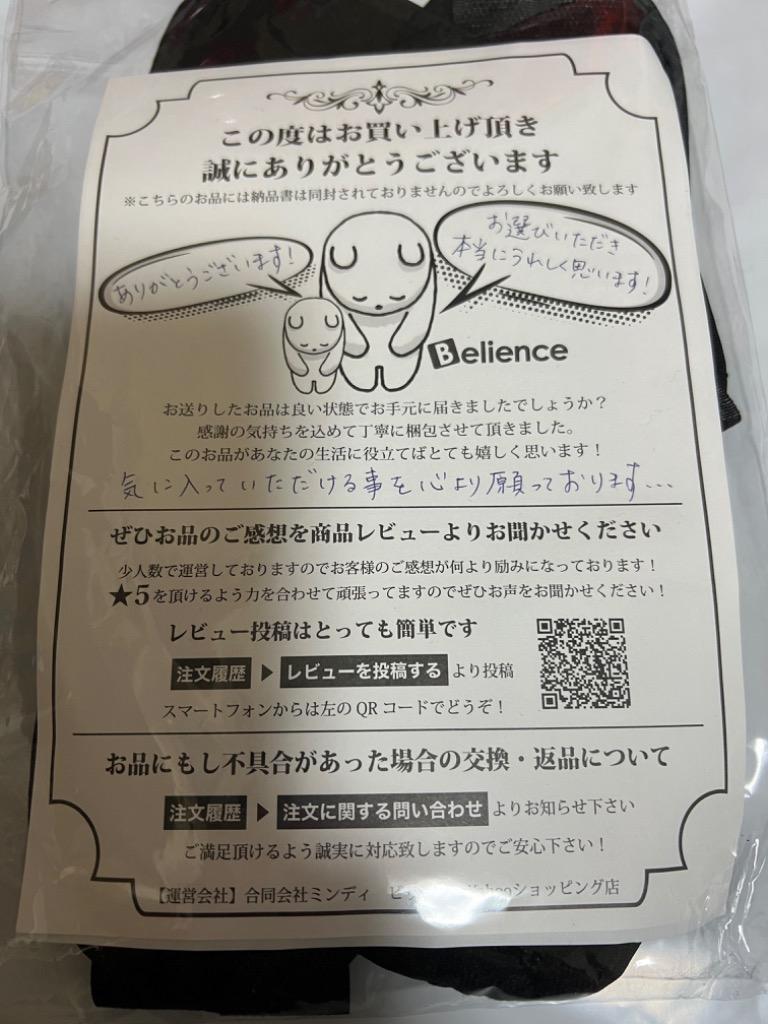 この度はお買い上げ頂き
誠にありがとうございます
※こちらのお品には納品書は同封されておりませんのでよろしくお願い致します
ありがとうございます!
お選びいただき
本当にうれしく思います!
Belience
お送りしたお品は良い状態でお手元に届きましたでしょうか?
感謝の気持ちを込めて丁寧に梱包させて頂きました。
このお品があなたの生活に役立てばとても嬉しく思います!
気に入っていただける事を心より願っております...
ぜひお品のご感想を商品レビューよりお聞かせください
少人数で運営しておりますのでお客様のご感想が何より励みになっております!
★5を頂けるよう力を合わせて頑張ってますのでぜひお声をお聞かせください!
レビュー投稿はとっても簡単です
注文履歴 ▶ レビューを投稿する より投稿
スマートフォンからは左のQRコードでどうぞ!
お品にもし不具合があった場合の交換・返品について
注文履歴 ▶ 注文に関する問い合わせ よりお知らせ下さい
ご満足頂けるよう誠実に対応致しますのでご安心下さい!
【運営会社】合同会社ミンディ ショッピング店